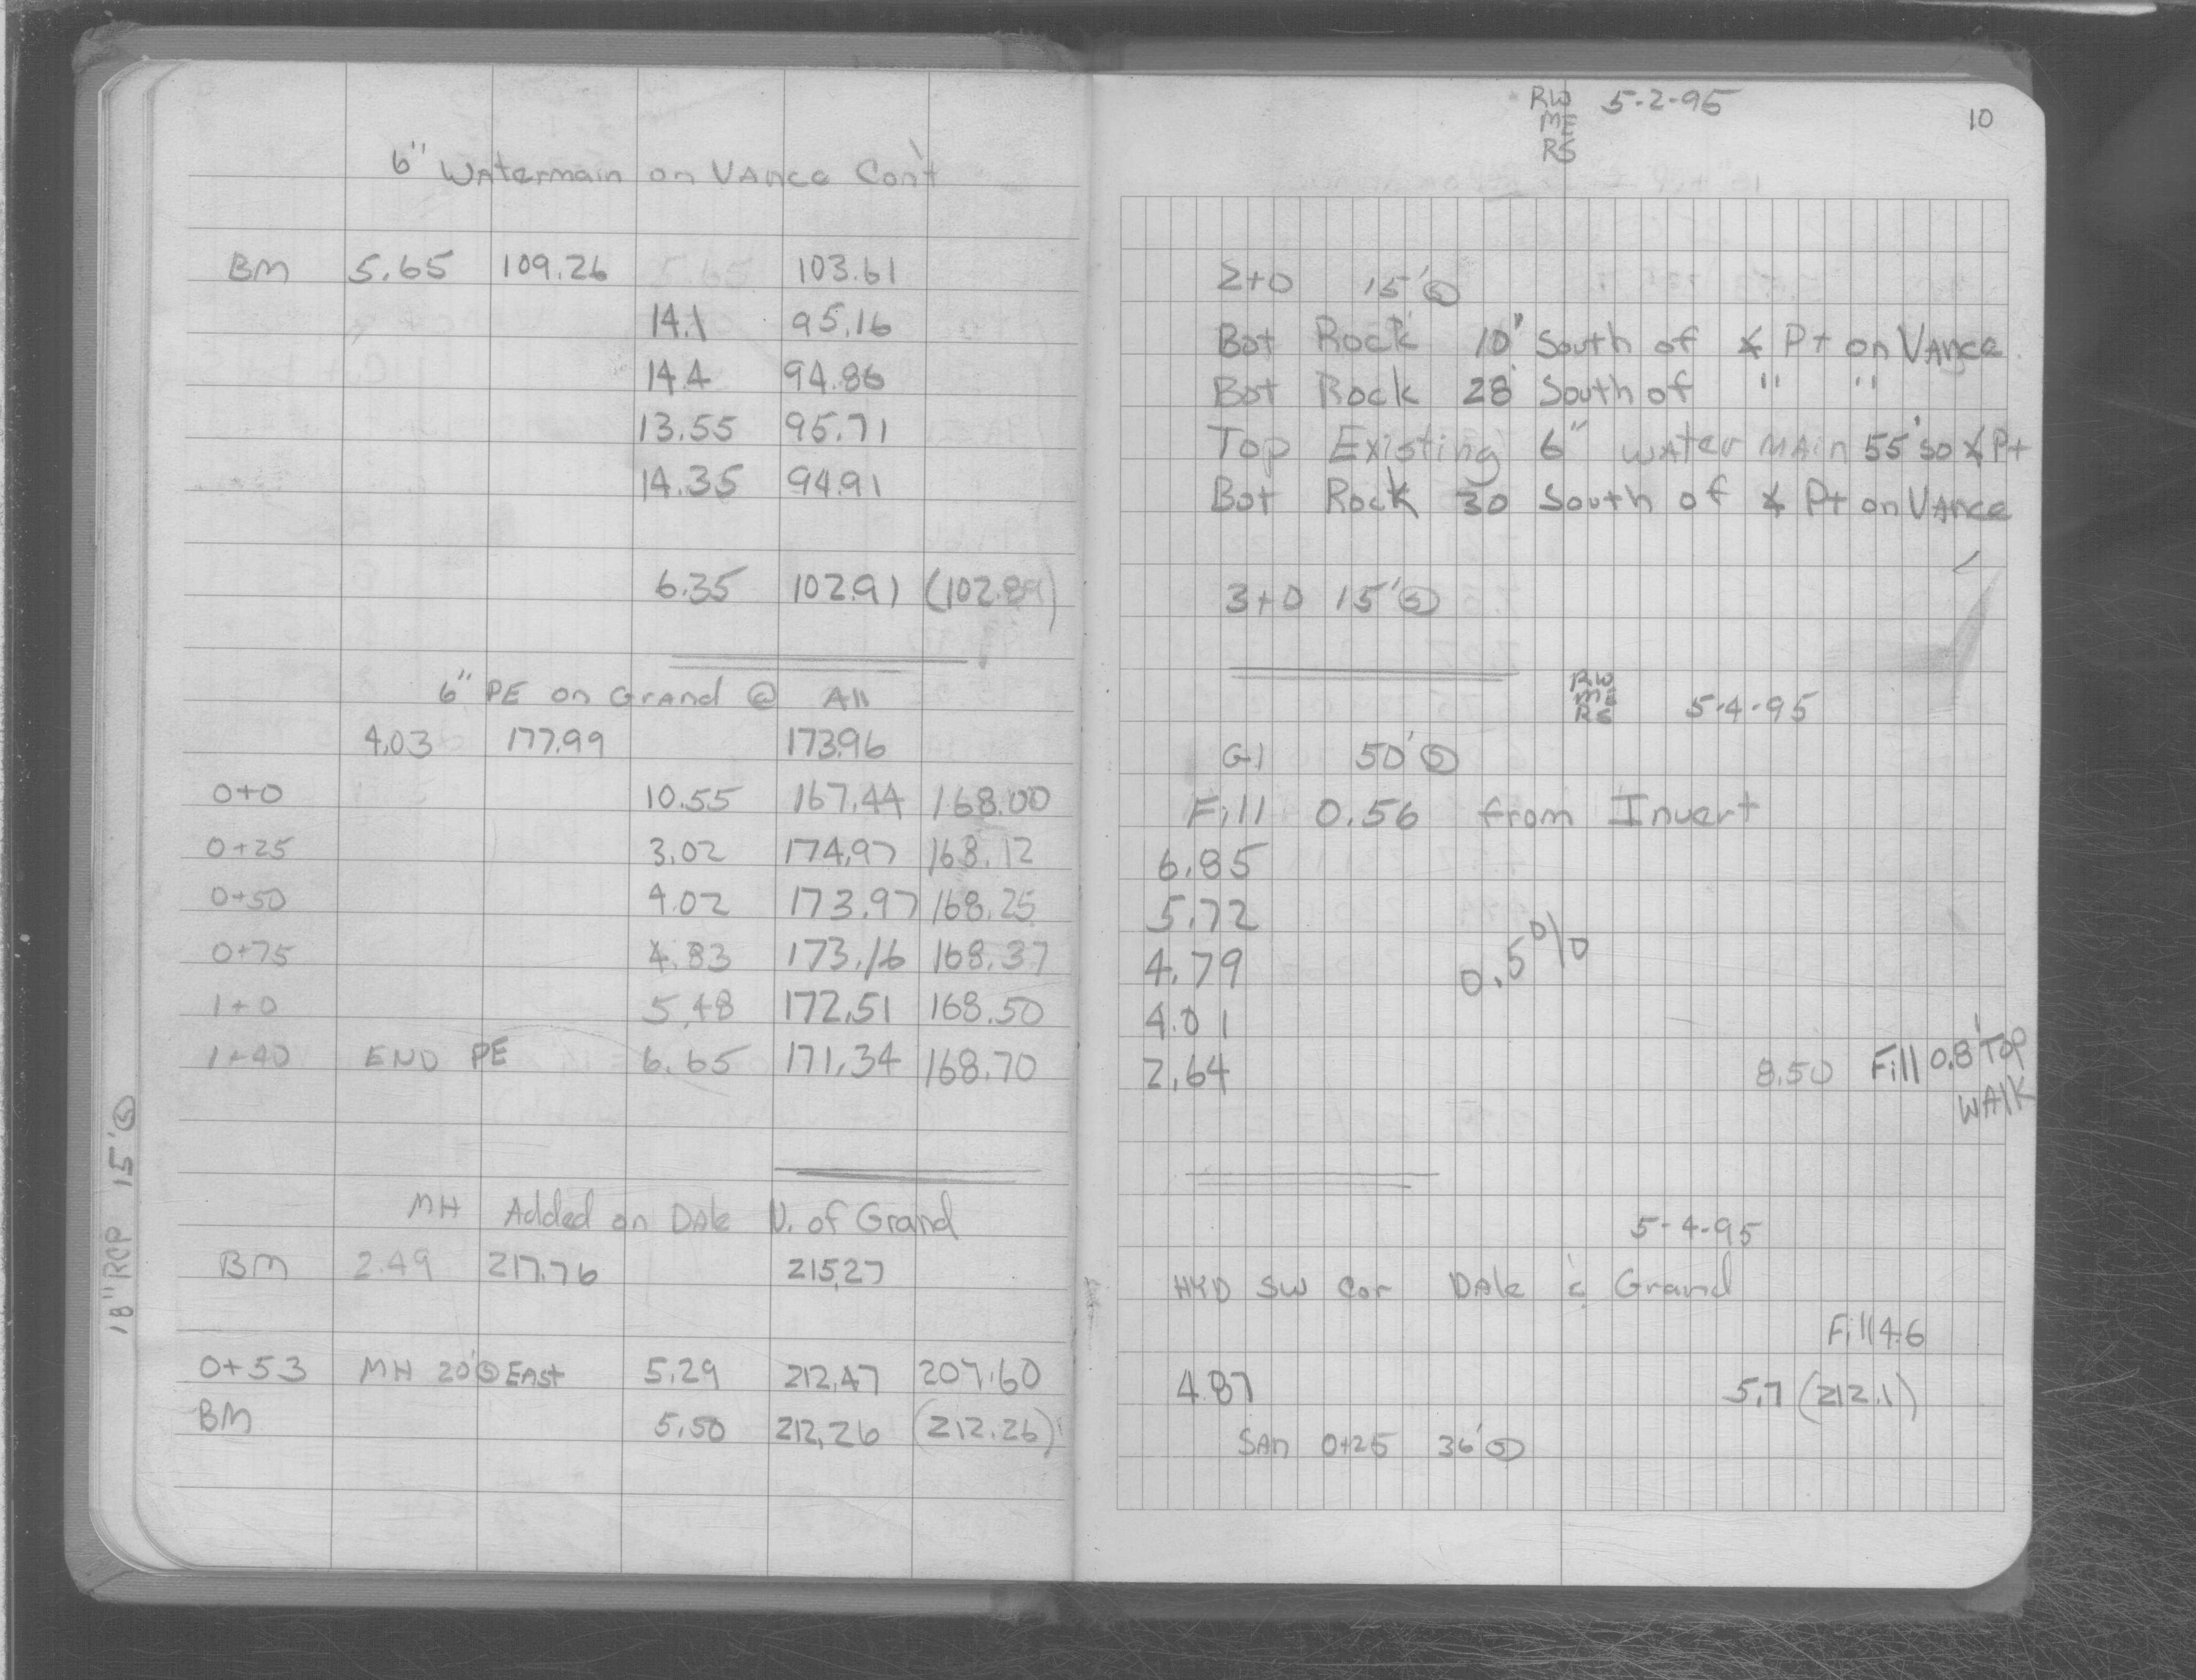 6" Watermain on Vance Con't
BM 5.65 109.26 103.61
14.1 95.16
14.4 94.86
13.55 95.71
14.35 94.91
6.35 102.91 (102.89)
6" PE on Grand @ All
4.03 177.99 173.96
0+0 10.55 167.44 168.00
0+25 3.02 174.97 168.12
0+50 4.02 173.97 168.25
0+75 4.83 173.16 168.37
1+0 5.48 172.51 168.50
1+40 END PE 6.65 171.34 168.70
MH Added on Dale N. of Grand
BM 2.49 217.76 215.27
0+53 MH 20' Ⓢ East 5.29 212.47 207.60
BM 5.50 212.26 (212.26)
18" RCP 15' Ⓢ
RW 5-2-95
ME
RS
10
2+0 15' Ⓢ
Bot Rock 10' South of ∡ Pt on Vance
Bot Rock 28' South of " "
Top Existing 6" water main 55' so ∡ Pt
Bot Rock 30 South of ∡ Pt on Vance
3+0 15' Ⓢ
RW
ME
RS
5-4-95
G1 50' Ⓢ
Fill 0.56 from Invert
6.85
5.72
4.79 0.5%
4.01
2.64 8.50 Fill 0.8' Top
Walk
5-4-95
HYD SW Cor Dale & Grand
Fill 4.6
4.87 5.7 (212.1)
San 0+25 36' Ⓢ